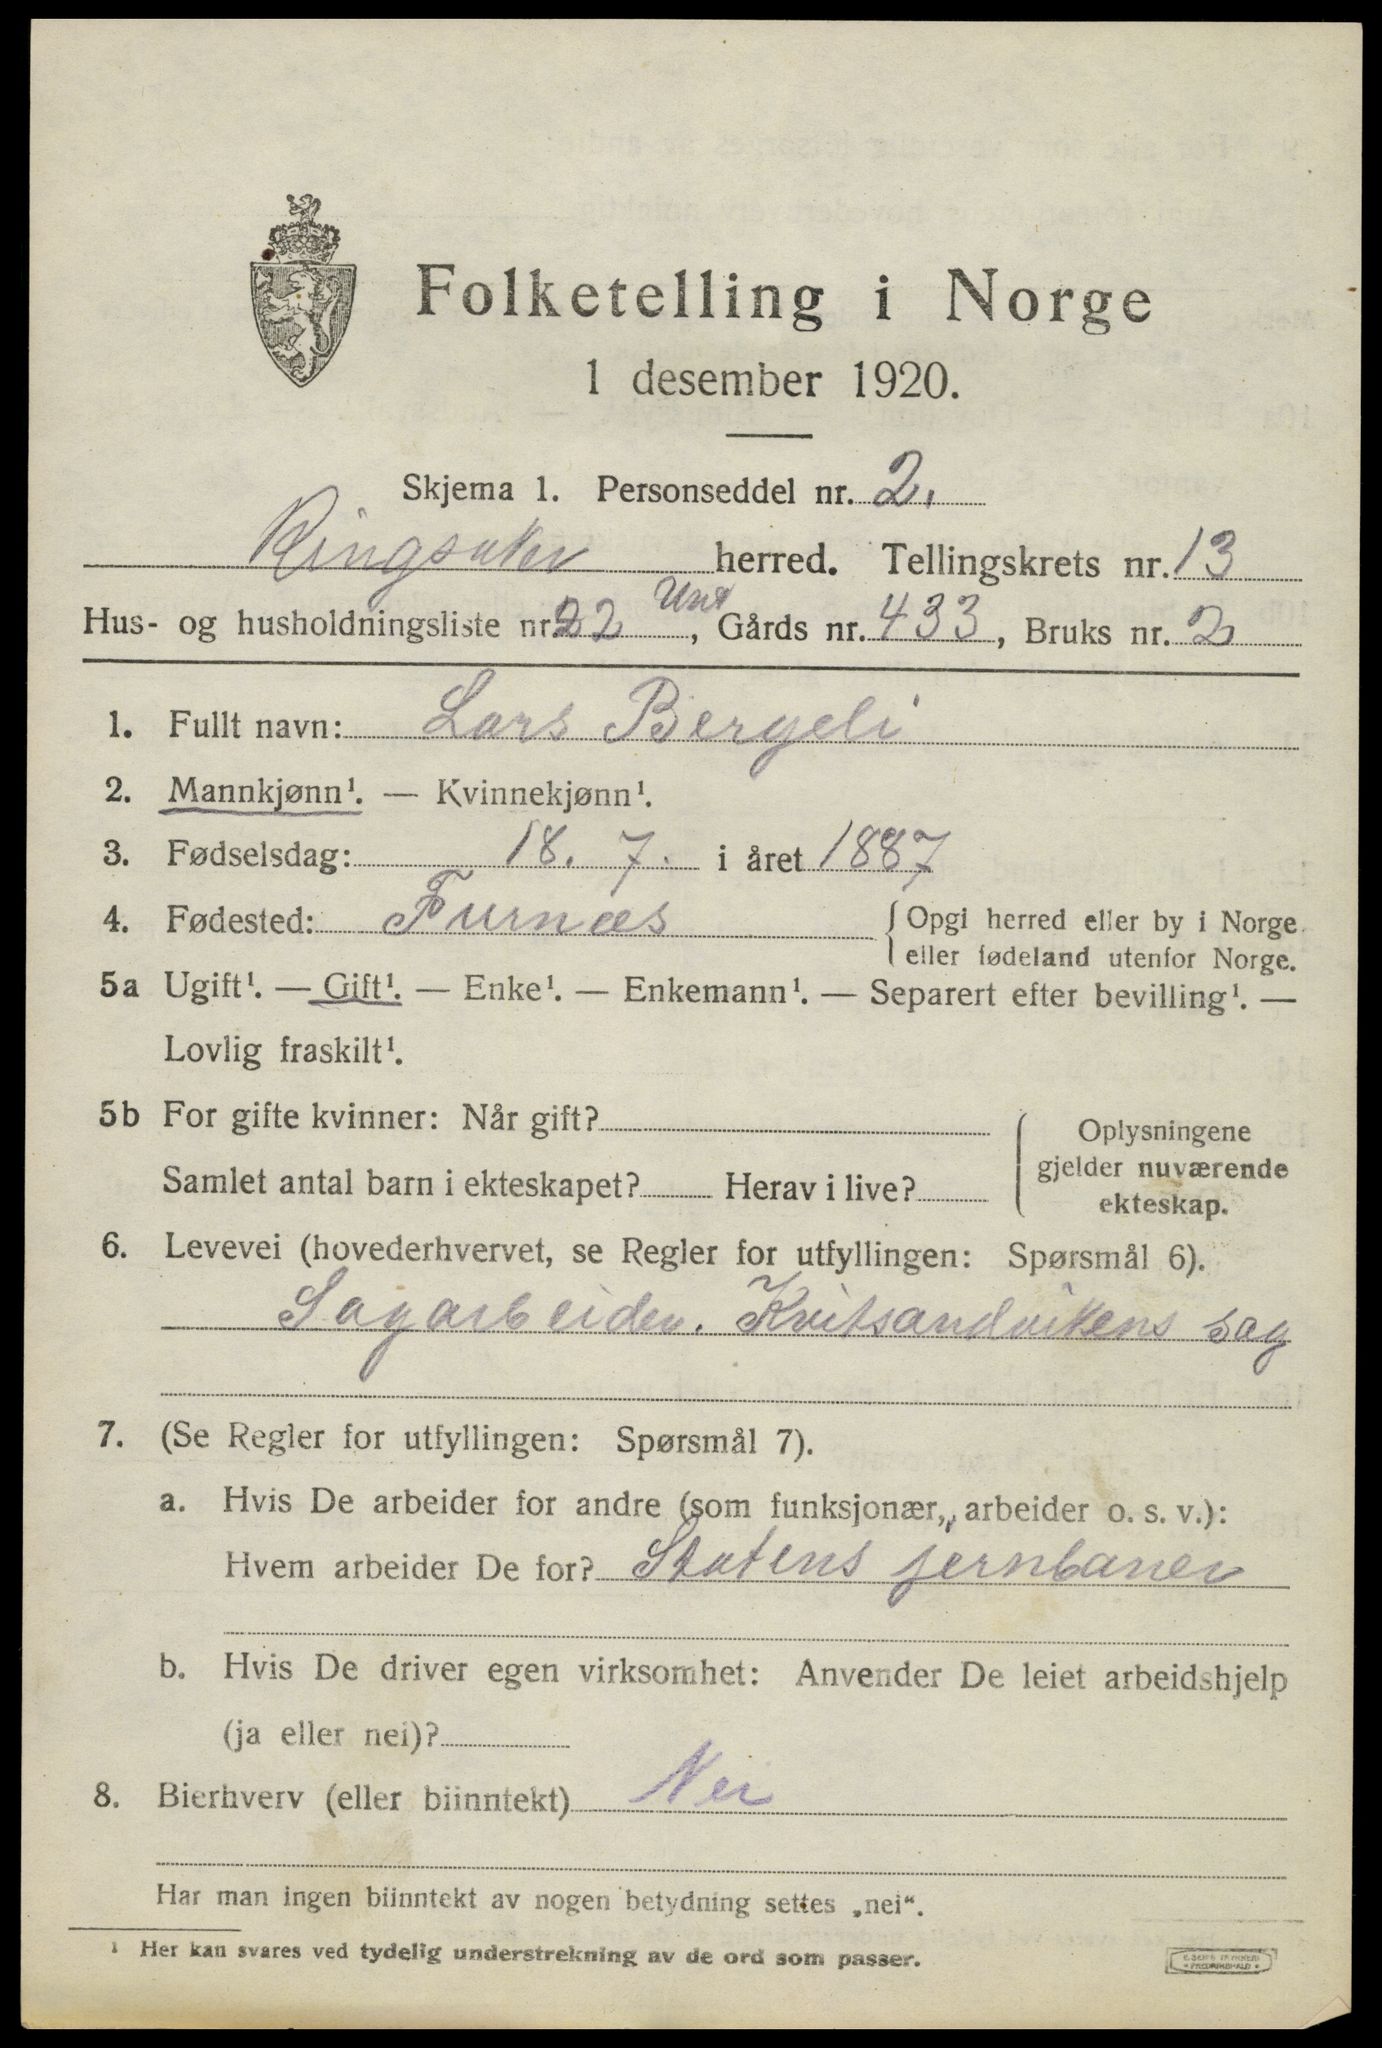 Folketelling i Norge
1 desember 1920.
Skjema 1. Personseddel nr. 2.
Ringsaker herred. Tellingskrets nr. 13
Hus- og husholdningsliste nr. 22, Gårds nr. 433, Bruks nr. 2
1. Fullt navn: Lars Bergeli
2. Mannkjønn¹. — Kvinnekjønn¹.
3. Fødselsdag: 18. 7. i året 1887
4. Fødested: Furnæs { Opgi herred eller by i Norge
eller fødeland utenfor Norge.
5a Ugift¹. — Gift¹. — Enke¹. — Enkemann¹. — Separert efter bevilling¹. —
Lovlig fraskilt¹.
5b For gifte kvinner: Når gift?
Samlet antal barn i ekteskapet? Herav i live?
Oplysningene
gjelder nuværende
ekteskap.
6. Levevei (hovederhvervet, se Regler for utfyllingen: Spørsmål 6).
Sagarbeider. Kvitsandvikens sag
7. (Se Regler for utfyllingen: Spørsmål 7).
a. Hvis De arbeider for andre (som funksjonær, arbeider o. s. v.):
Hvem arbeider De for? Statens jernbaner
b. Hvis De driver egen virksomhet: Anvender De leiet arbeidshjelp
(ja eller nei)?
8. Bierhverv (eller biinntekt) Nei
Har man ingen biinntekt av nogen betydning settes „nei“.
¹ Her kan svares ved tydelig understrekning av de ord som passer.